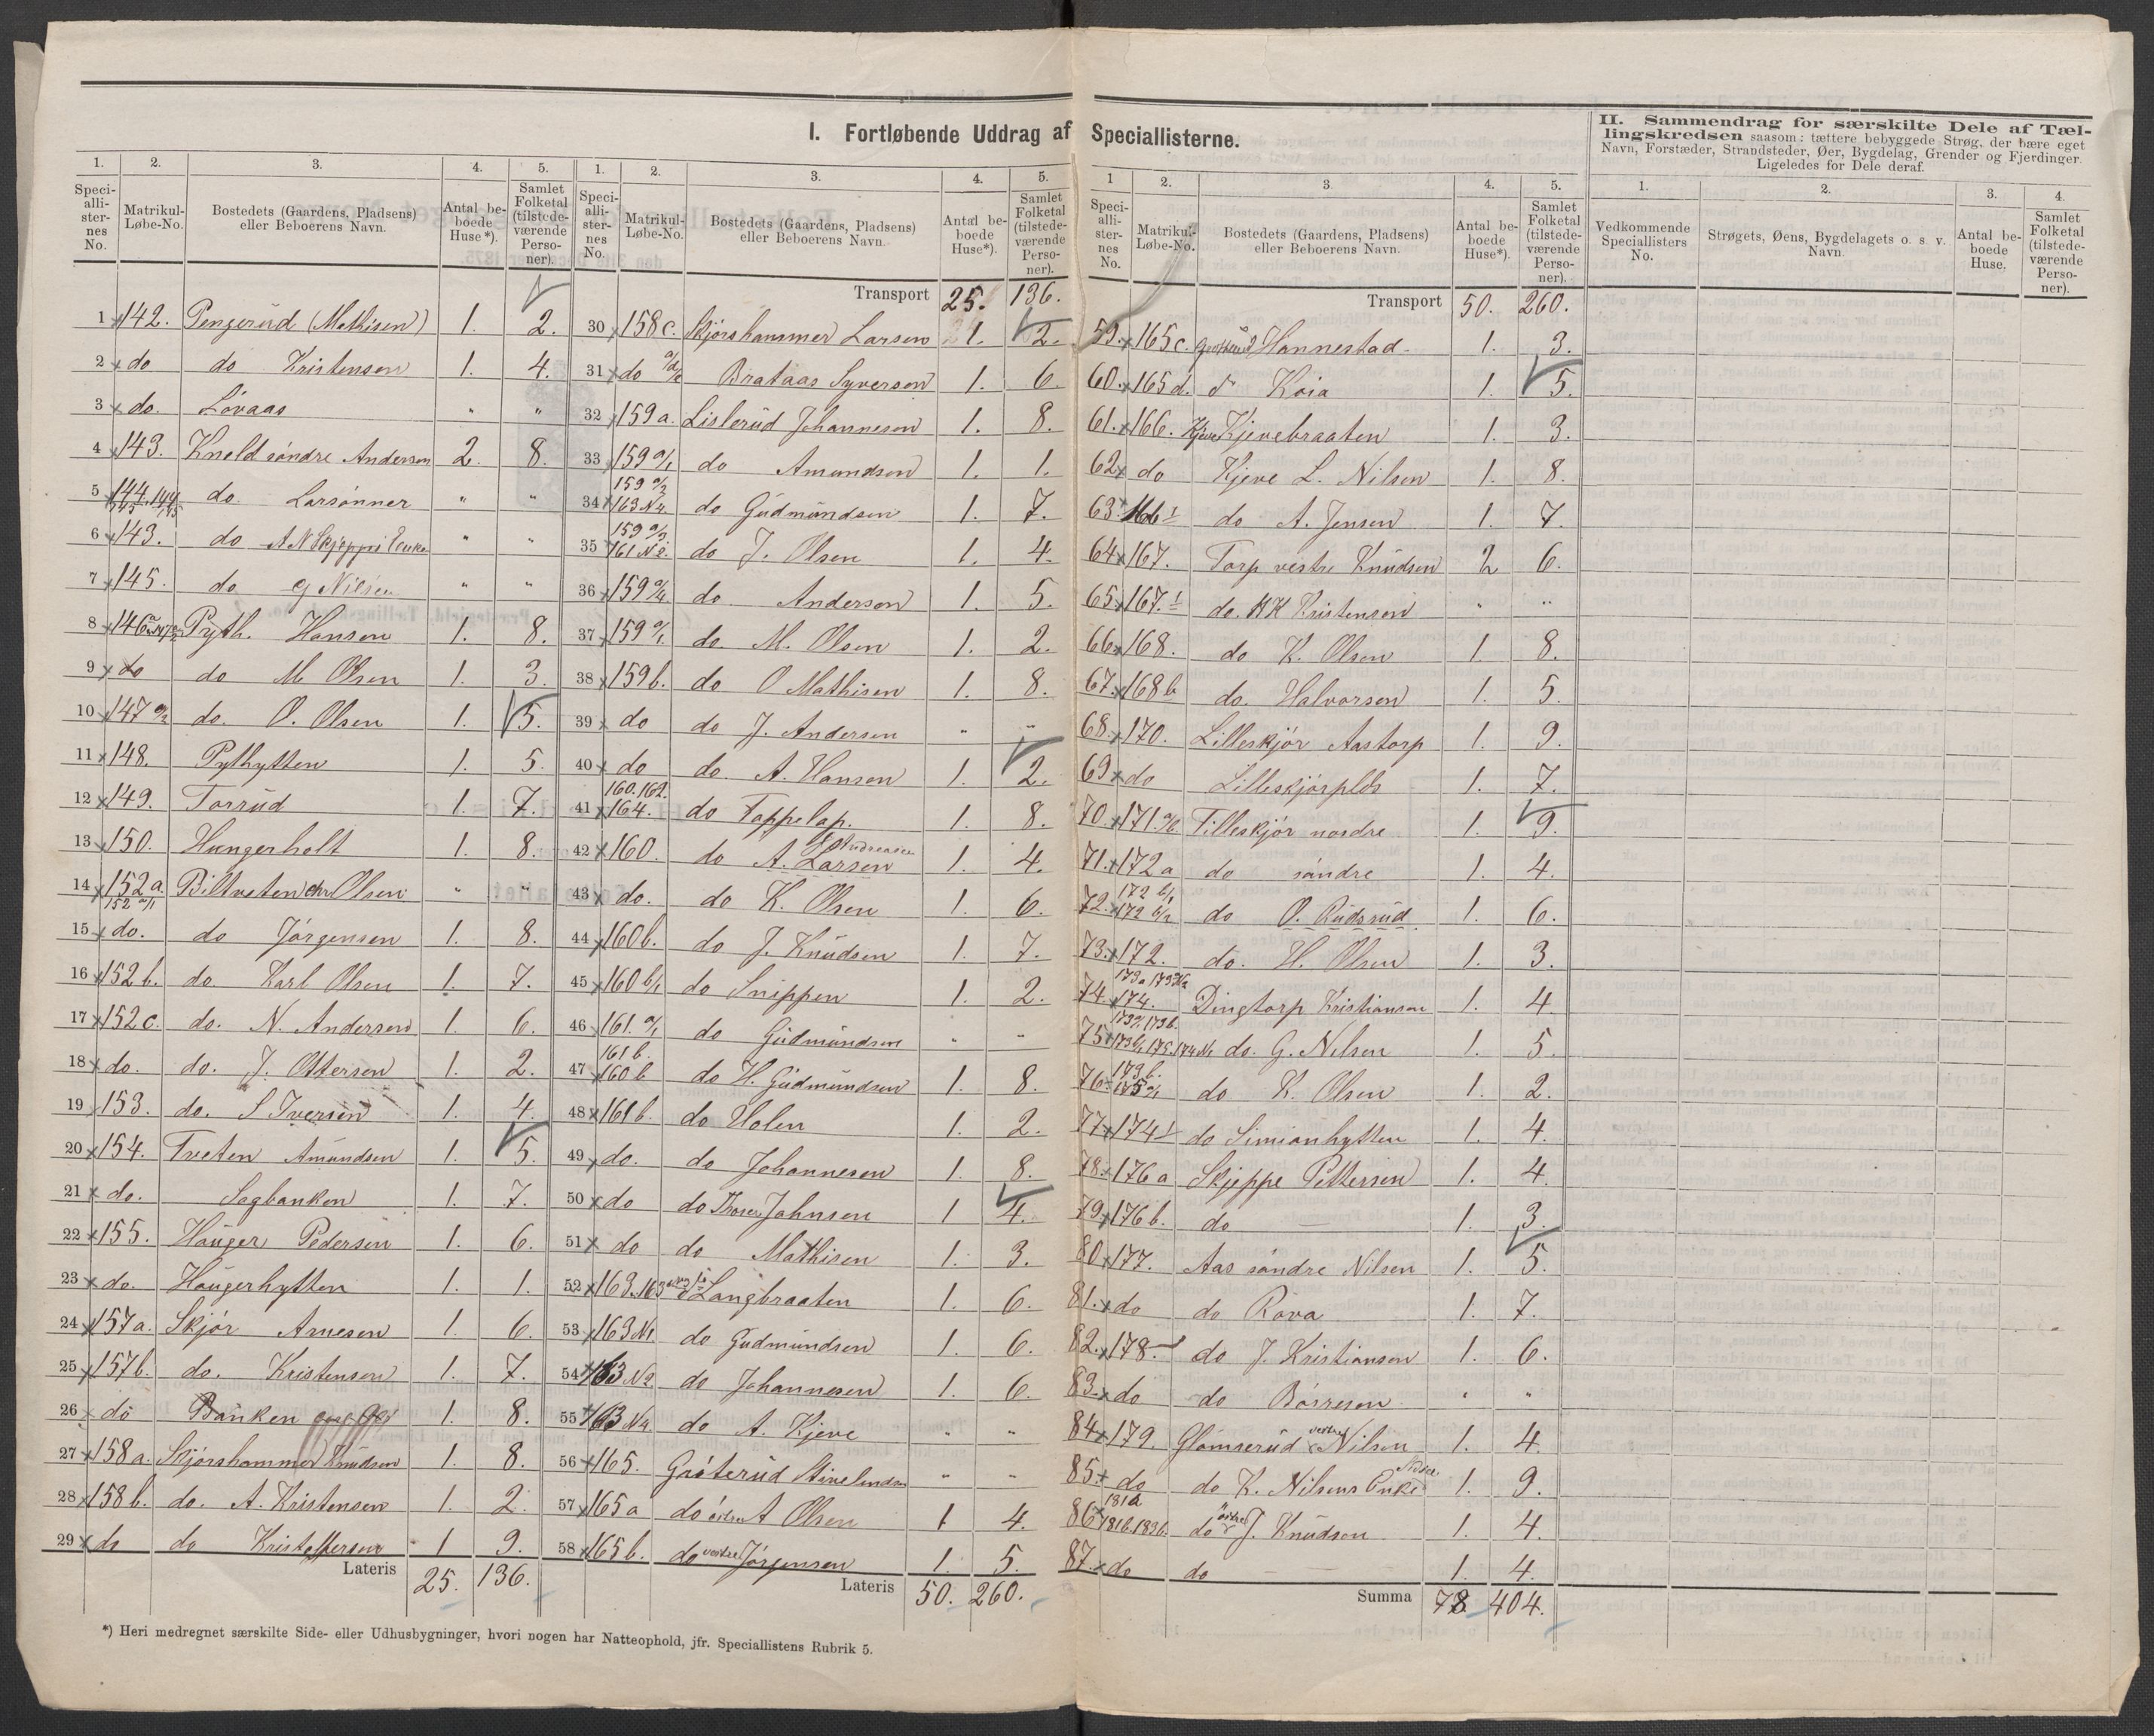 I. Fortløbende Uddrag af Speciallisterne.
II. Sammendrag for særskilte Dele af Tællingskredsen saasom: tættere bebyggede Strøg, der bære eget Navn, Forstæder, Strandsteder, Øer, Bygdelag, Grender og Fjerdinger. Ligeledes for Dele deraf.
1. 2. 3. 4. 5.
Speciallisternes No. Matrikul-Løbe-No. Bostedets (Gaardens, Pladsens) eller Beboerens Navn. Antal beboede Huse*). Samlet Folketal (tilstedeværende Personer).
1 142. Pengerud (Mathisen) 1. 2.
2 do do Kristensen 1. 4.
3 do. Lövaas " "
4 143. Kneld söndre Andersen 2. 8.
5 144. 144 145 145 do. Larsönner " "
6 143. do A N Skjeppes Enke " "
7 145. do G Nilsen " "
8 146 Pyth. Hansen 1. 8.
9 do do M Olsen 1. 3.
10 147 do. O. Olsen 1. 5.
11 148. Pythytten 1. 5.
12 149. Torrud 1. 7.
13 150. Hungerholt 1. 8.
14 152a. 152 a/1 Biltveten chr Olsen " "
15 do. do Jörgensen 1. 8.
16 152b. do Karl Olsen 1. 7.
17 152c. do. N. Andersen 1. 6.
18 do. do. J. Ottersen 1. 2.
19 153. do. S Iversen 1. 4.
20 154. Tveten Amundsen 1. 5.
21 do. Sagbanken 1. 7.
22 155. Hauger Pedersen 1. 6.
23 do. Haugerhytten 1. 1.
24 157a. Skjör Arnesen 1. 6.
25 157b. do. Kristensen 1. 7.
26 do Banken 1. 8.
27 158a. Skjörshammer Knudsen 1. 8.
28 158b. do. A. Kristensen 1. 2.
29 do do Kristoffersen 1 9.
Lateris 25. 136.
1. 2. 3. 4. 5.
Speciallisternes No. Matrikul-Løbe-No. Bostedets (Gaardens, Pladsens) eller Beboerens Navn. Antal beboede Huse*). Samlet Folketal (tilstedeværende Personer).
Transport 25. 136.
30 158c. Skjörshammer Larsen 1. 2.
31 do Brataas Syversen 1. 6.
32 159a. Lislerud Johannesen 1. 8.
33 159 a/1 do Amundsen 1. 1.
34 159 a/2 163 N4. do Gudmundsen 1. 7.
35 159 a/3 161 N2. do J. Olsen 1. 4.
36 159 a/4 do. Andersen 1. 5.
37 159 a/1 do. M. Olsen 1. 2.
38 159b. do O Mathisen 1. 8.
39 do do J. Andersen " "
40 do do. A. Hansen 1. 2.
41 160. 162. 164. do Tappelap. 1. 8.
42 160. do A. Larsen Andreasen 1. 4.
43 do. do K. Olsen 1. 6.
44 160b. do J. Knudsen 1. 7.
45 160 b/1 do Snippen 1. 2.
46 161. a/1 do Gudmundsen " "
47 161 b. 160 b do H. Gudmundsen 1. 8.
48 161b. do Holen 1. 2.
49 do. do Johannesen 1. 8.
50 do do Thorer Johnsen 1 4.
51 do do Mathisen 1. 3.
52 163. 163 Langbraaten 1. 6.
53 163 N1 do Gudmundsen 1. 6.
54 163 N2. do Johannesen 1. 6.
55 163 N4. do A. Kjeve " "
56 165. Gröterud " "
57 165a do östre A Olsen 1 4.
58 165b. do vestre Jörgensen 1. 5.
Lateris 50. 260.
1 2. 3. 4. 5.
Speciallisternes No. Matrikul-Løbe-No. Bostedets (Gaardens, Pladsens) eller Beboerens Navn. Antal beboede Huse*). Samlet Folketal (tilstedeværende Personer).
Transport 50. 260.
59. 165c. Gröterud Hannestad 1. 3.
60. 165d. do Koia 1. 5.
61. 166. Kjeve Kjevebraaten 1. 3.
62 do Kjeve L. Nilsen 1. 8.
63. 166 1 do A. Jensen 1. 7.
64 167. Torp vestre Knudsen 2 6.
65. 167. 1 do. KK Kristensen " "
66 168. do K. Olsen 1. 8.
67. 168b do. Halvorsen 1. 5.
68. 170. Lilleskjör Aastorp 1. 9.
69 do Lilleskjörplds 1. 7.
70. 171. Lilleskjör nordre 1. 9.
71. 172a do söndre 1. 4.
72. 172 b/1 172 b/2 do O. Rudsrud 1. 6.
73. 172. do. H. Olsen 1. 3.
74. 174. Dingtorp Kristiansen 1. 4.
75 do. G. Nilsen 1. 5.
76. 173b. 175 a/1 do K. Olsen 1. 2.
77 174 1 do Simianhytten 1. 4.
78. 176a Skjeppe Pettersen 1. 4.
79 176b. do — 1. 3.
80 177. Aas söndre Nilsen 1. 5.
81. do do Röva 1. 7.
82. 178. do J. Kristiansen 1. 6.
83. do do Börresen " "
84 179. Glomserud vestre Nilsen 1. 4.
85. do do K. Nilsens Enke 1. 9.
86 181a 181b. 183b. do östre J. Knudsen 1. 4.
87. do do — 1. 4.
Summa 78 404.
1. 2. 3. 4.
Vedkommende Speciallisters No. Strøgets, Øens, Bygdelagets o. s. v. Navn. Antal beboede Huse. Samlet Folketal (tilstedeværende Personer).
*) Heri medregnet særskilte Side- eller Udhusbygninger, hvori nogen har Natteophold, jfr. Speciallistens Rubrik 5.